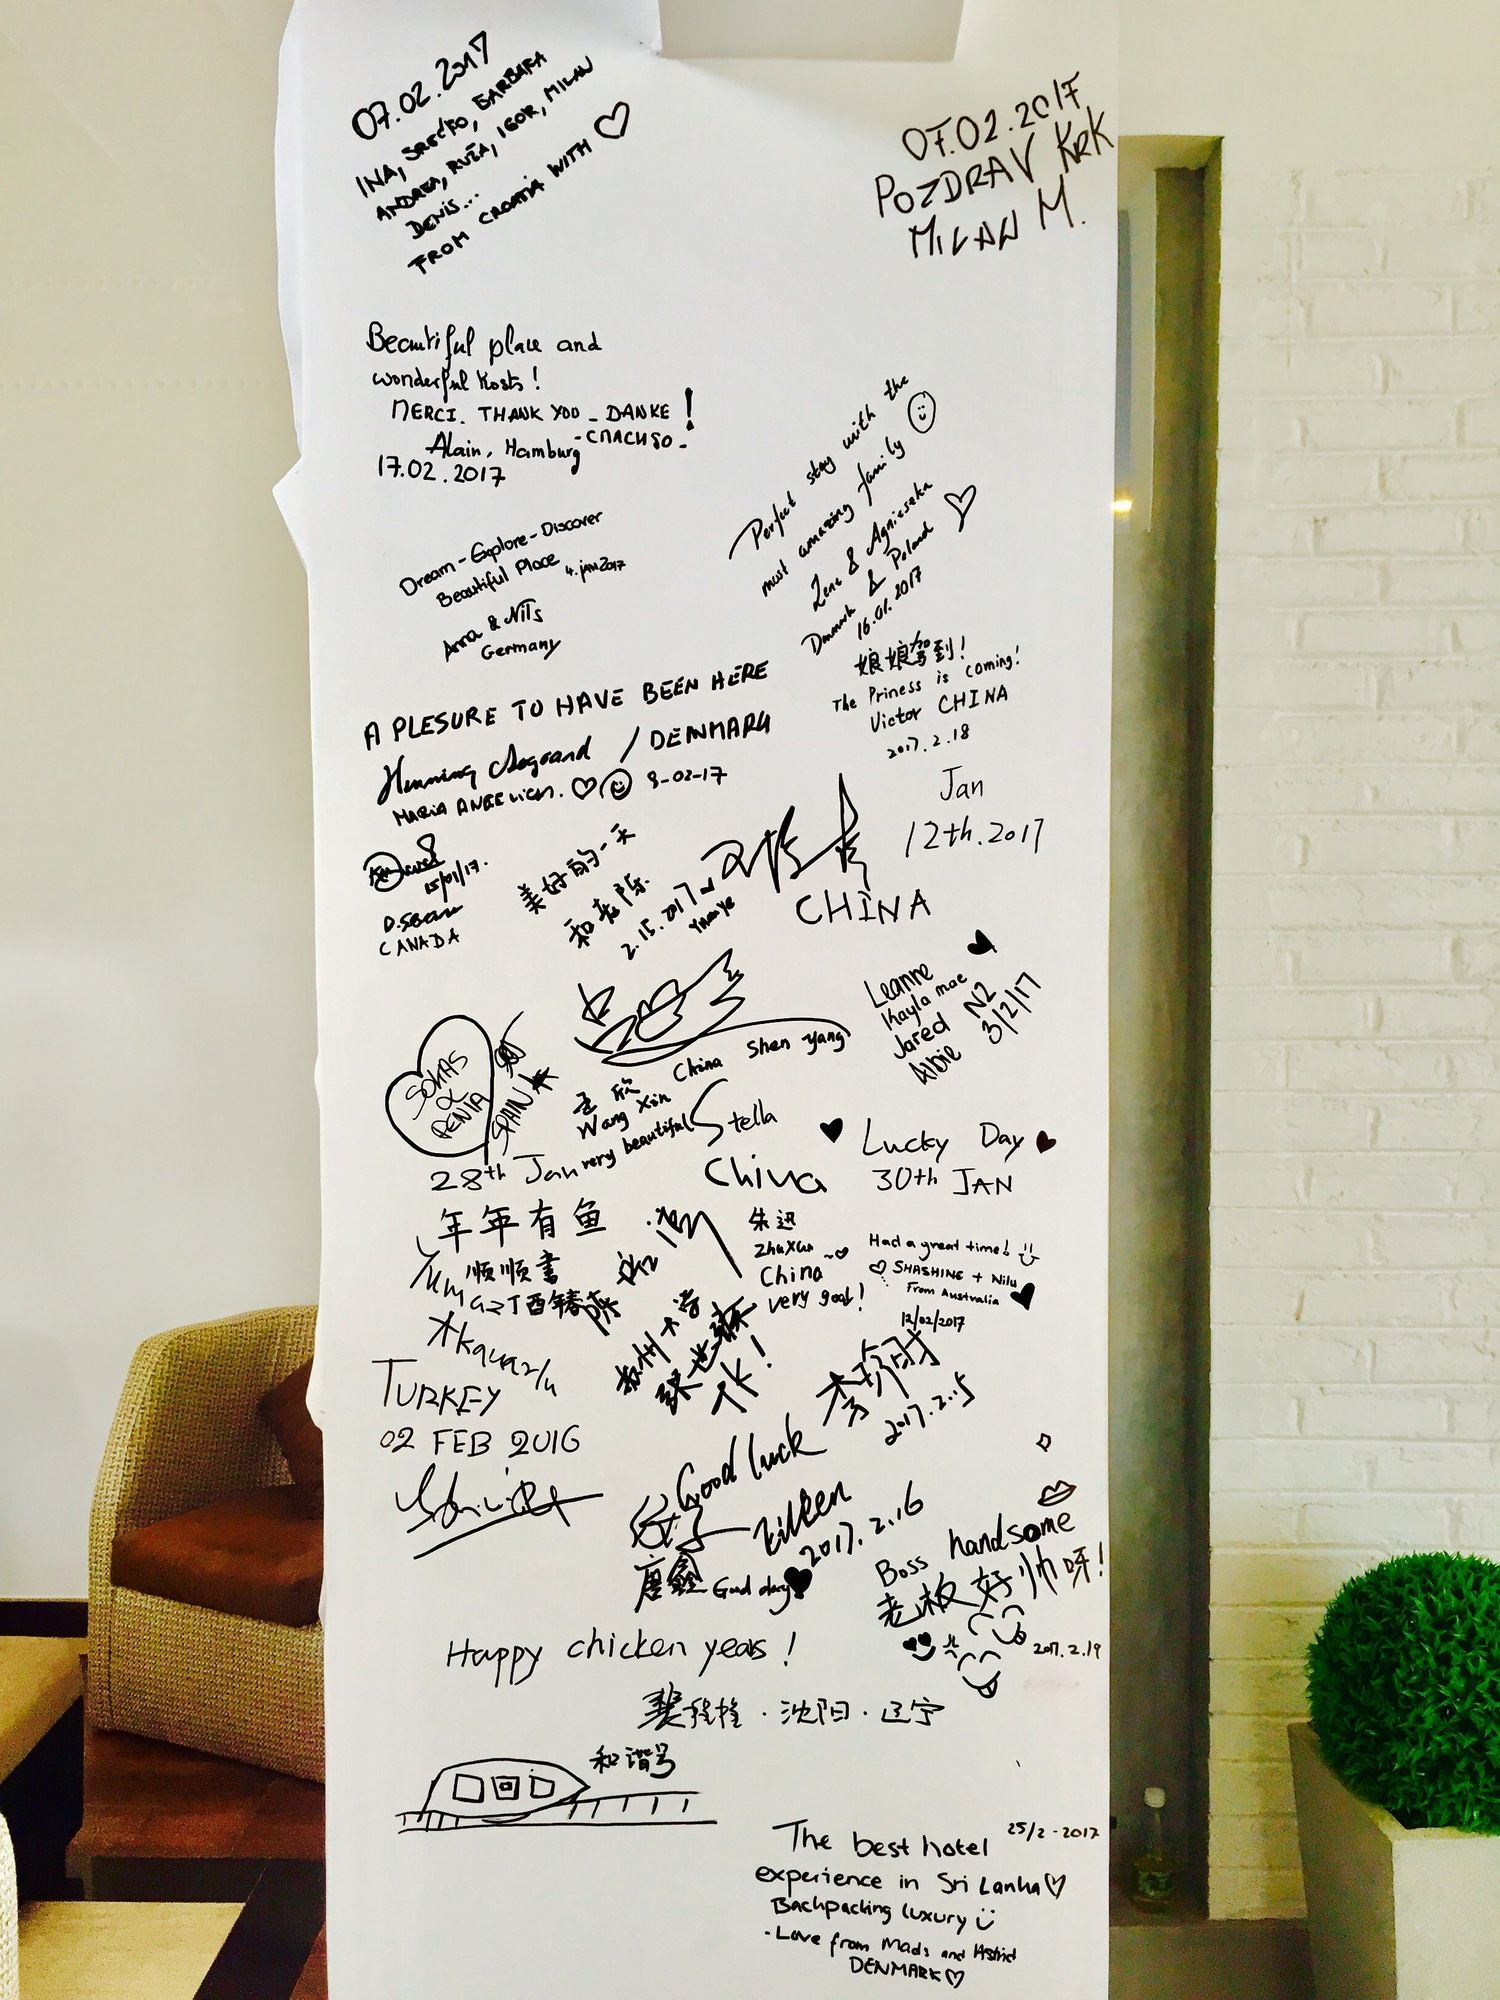 07.02.2017
INA, SREĆKO, BARBARA
ANDREA, RUŽA, IGOR, MILAN
DENIS...
FROM CROATIA WITH
07.02.2017
POZDRAV KRK
MILAN M.
Beautiful place and
wonderful hosts!
MERCI. THANK YOU - DANKE!
Alain, Hamburg
17.02.2017
Perfect stay with the
most amazing family
& Agnieszka
Denmark & Poland
16.01.2017
Dream-Explore-Discover
Beautiful Place 4.jan 2017
Anna & Nils
Germany
娘娘驾到!
The Priness is coming!
Victor CHINA
2017.2.18
A PLESURE TO HAVE BEEN HERE
Henning / DENMARK
MARIA 9-02-17
Jan
12th.2017
CHINA
15/01/17.
CANADA
美好的一天
和老陈
2.15.2017
Leanne
Kayla mae
Jared NZ
Albie 3/2/17
SPAIN
China Shen yang
Wang Xin
very beautiful
28th Jan
Stella
China
Lucky Day
30th JAN
年年有鱼
顺顺
朱迅
ZhuXun
China
very good!
Had a great time!
SHASHINE + Nilu
From Australia
12/02/2017
TURKEY
02 FEB 2016
2017.2.15
Good luck
2017.2.16
唐鑫 Good day
Boss handsome
老板好帅呀!
2017.2.19
Happy chicken years!
沈阳·辽宁
和谐号
The best hotel 25/2-2017
experience in Sri Lanka
Backpacking luxury
-Love from Mads and Astrid
DENMARK